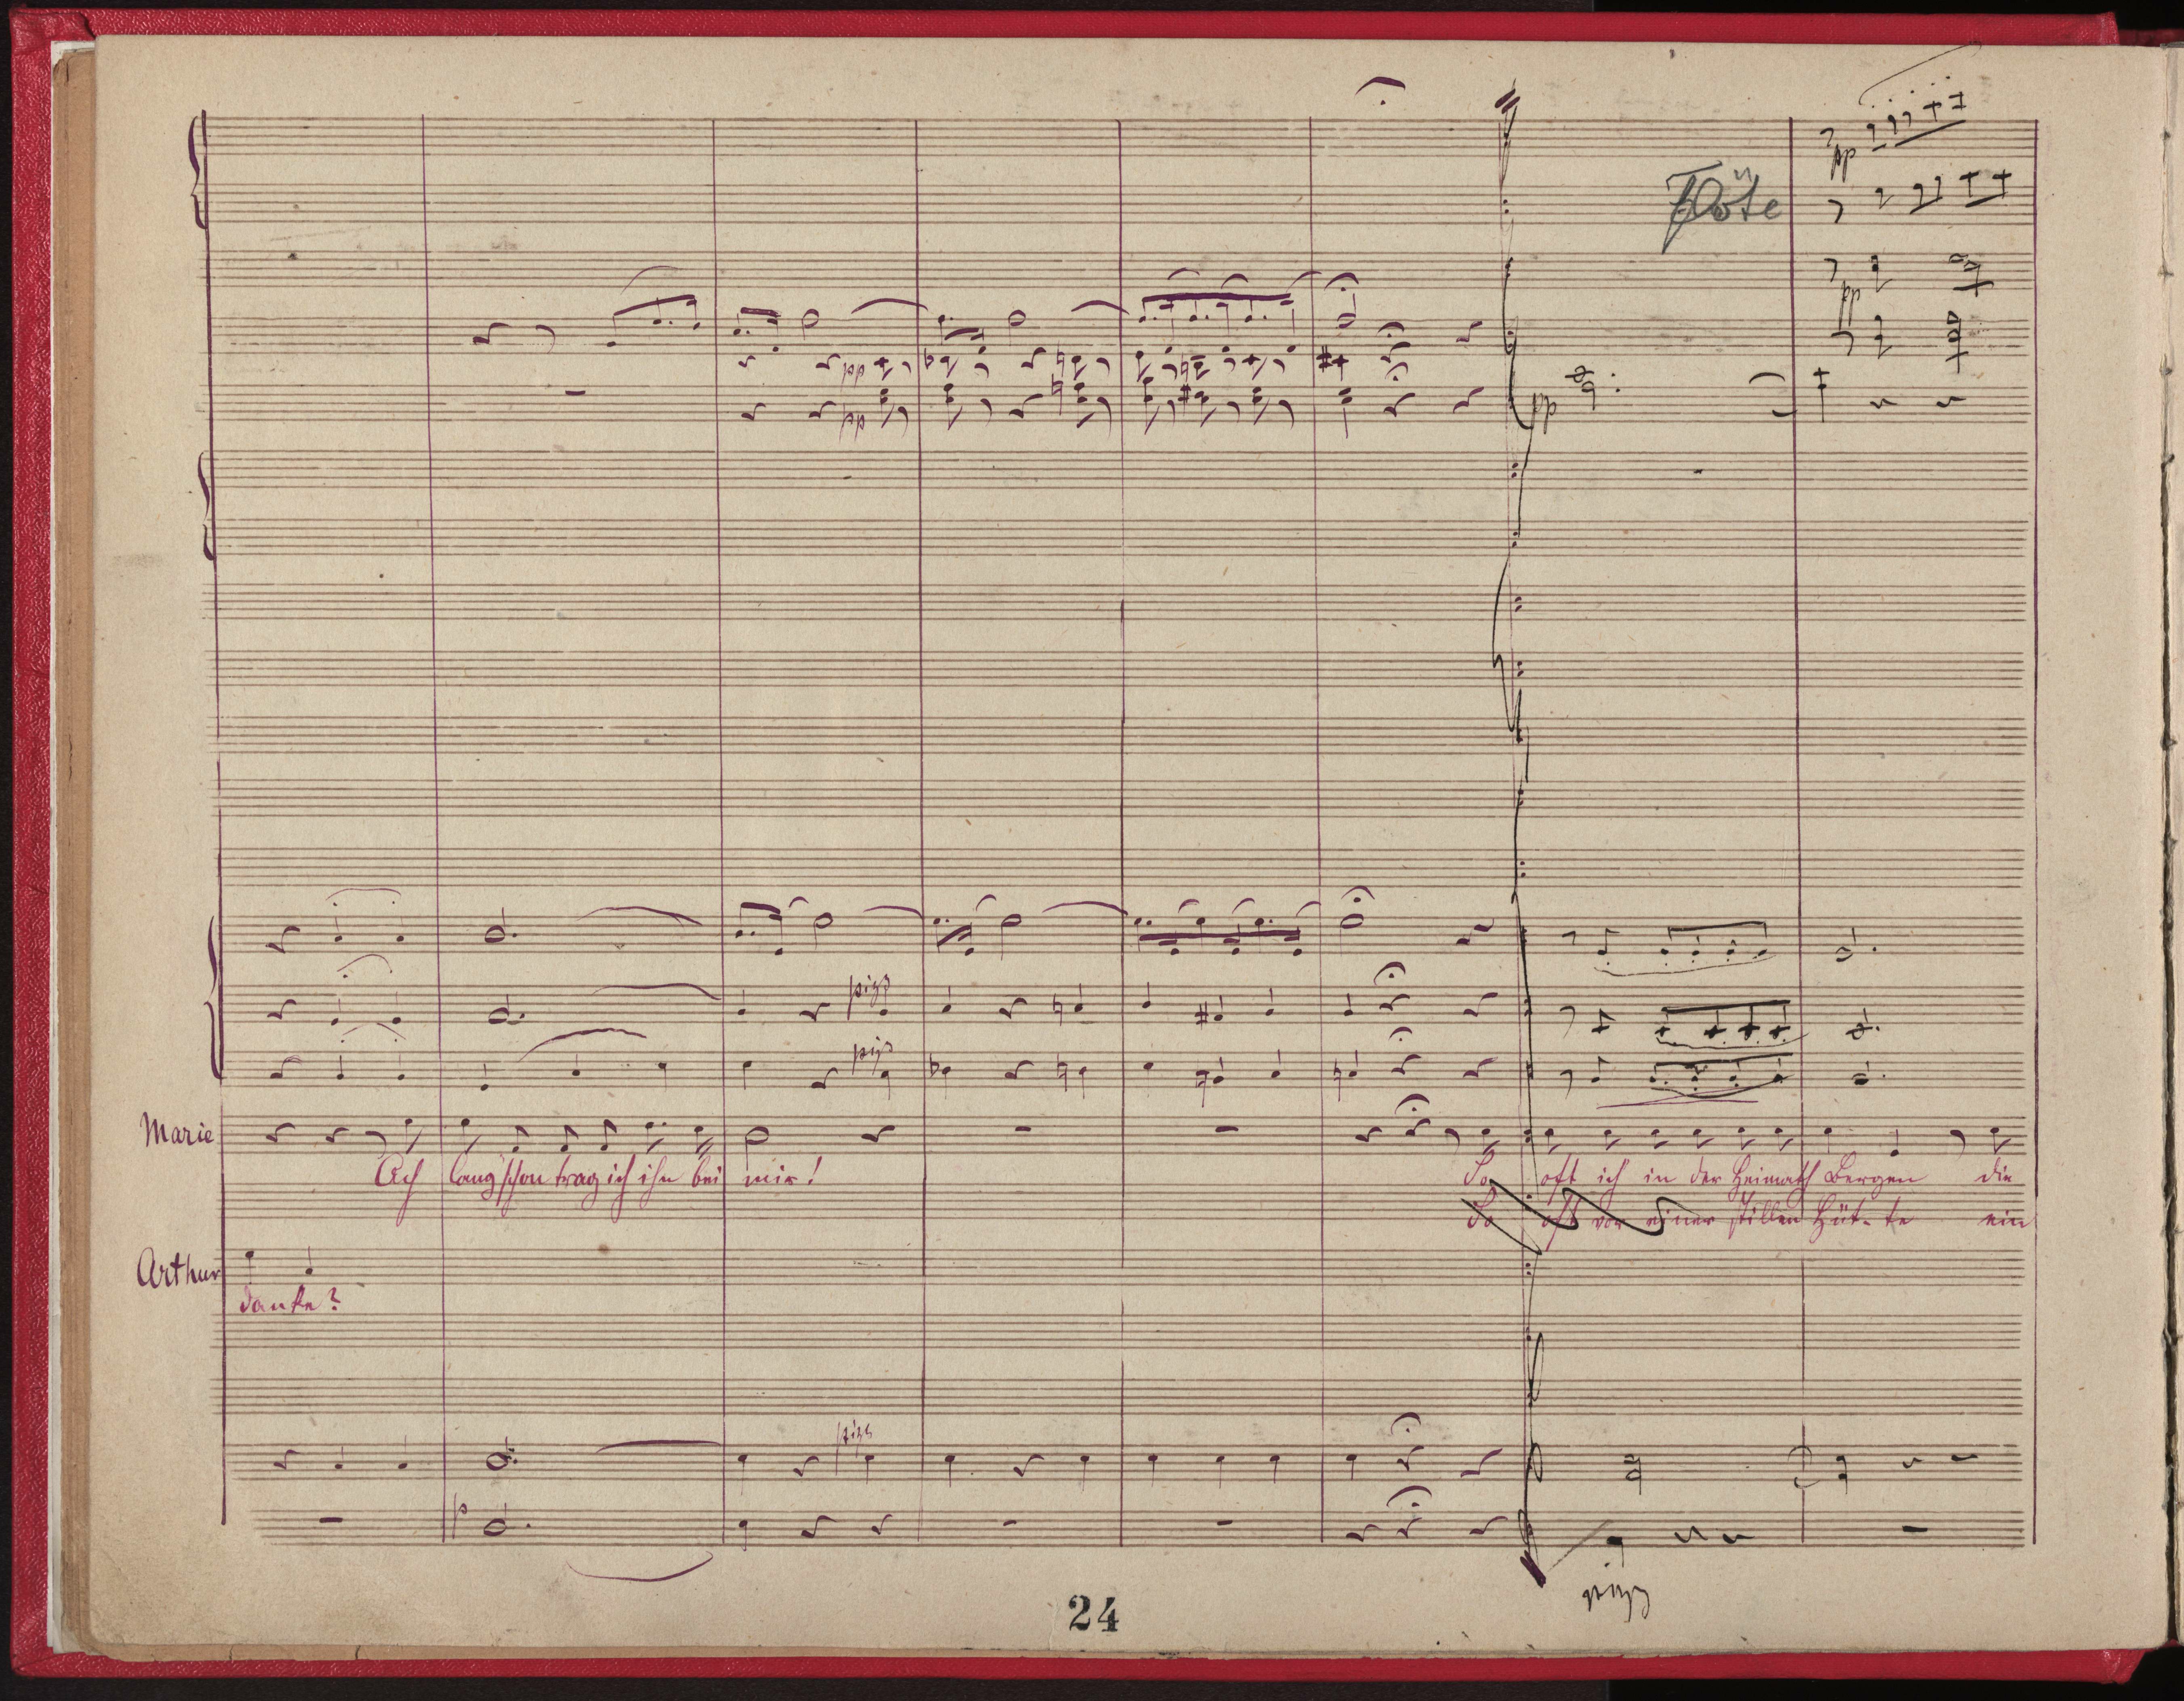 Flöte
pp
pp
pp
pp
pp
pizz
pizz
Marie
Ach lang schon trag ich ihn bei mir! So oft ich in der Heimath Bergen die
So oft vor einer stillen Hüt-te ein
Arthur
danke?
pizz
p
pizz
24